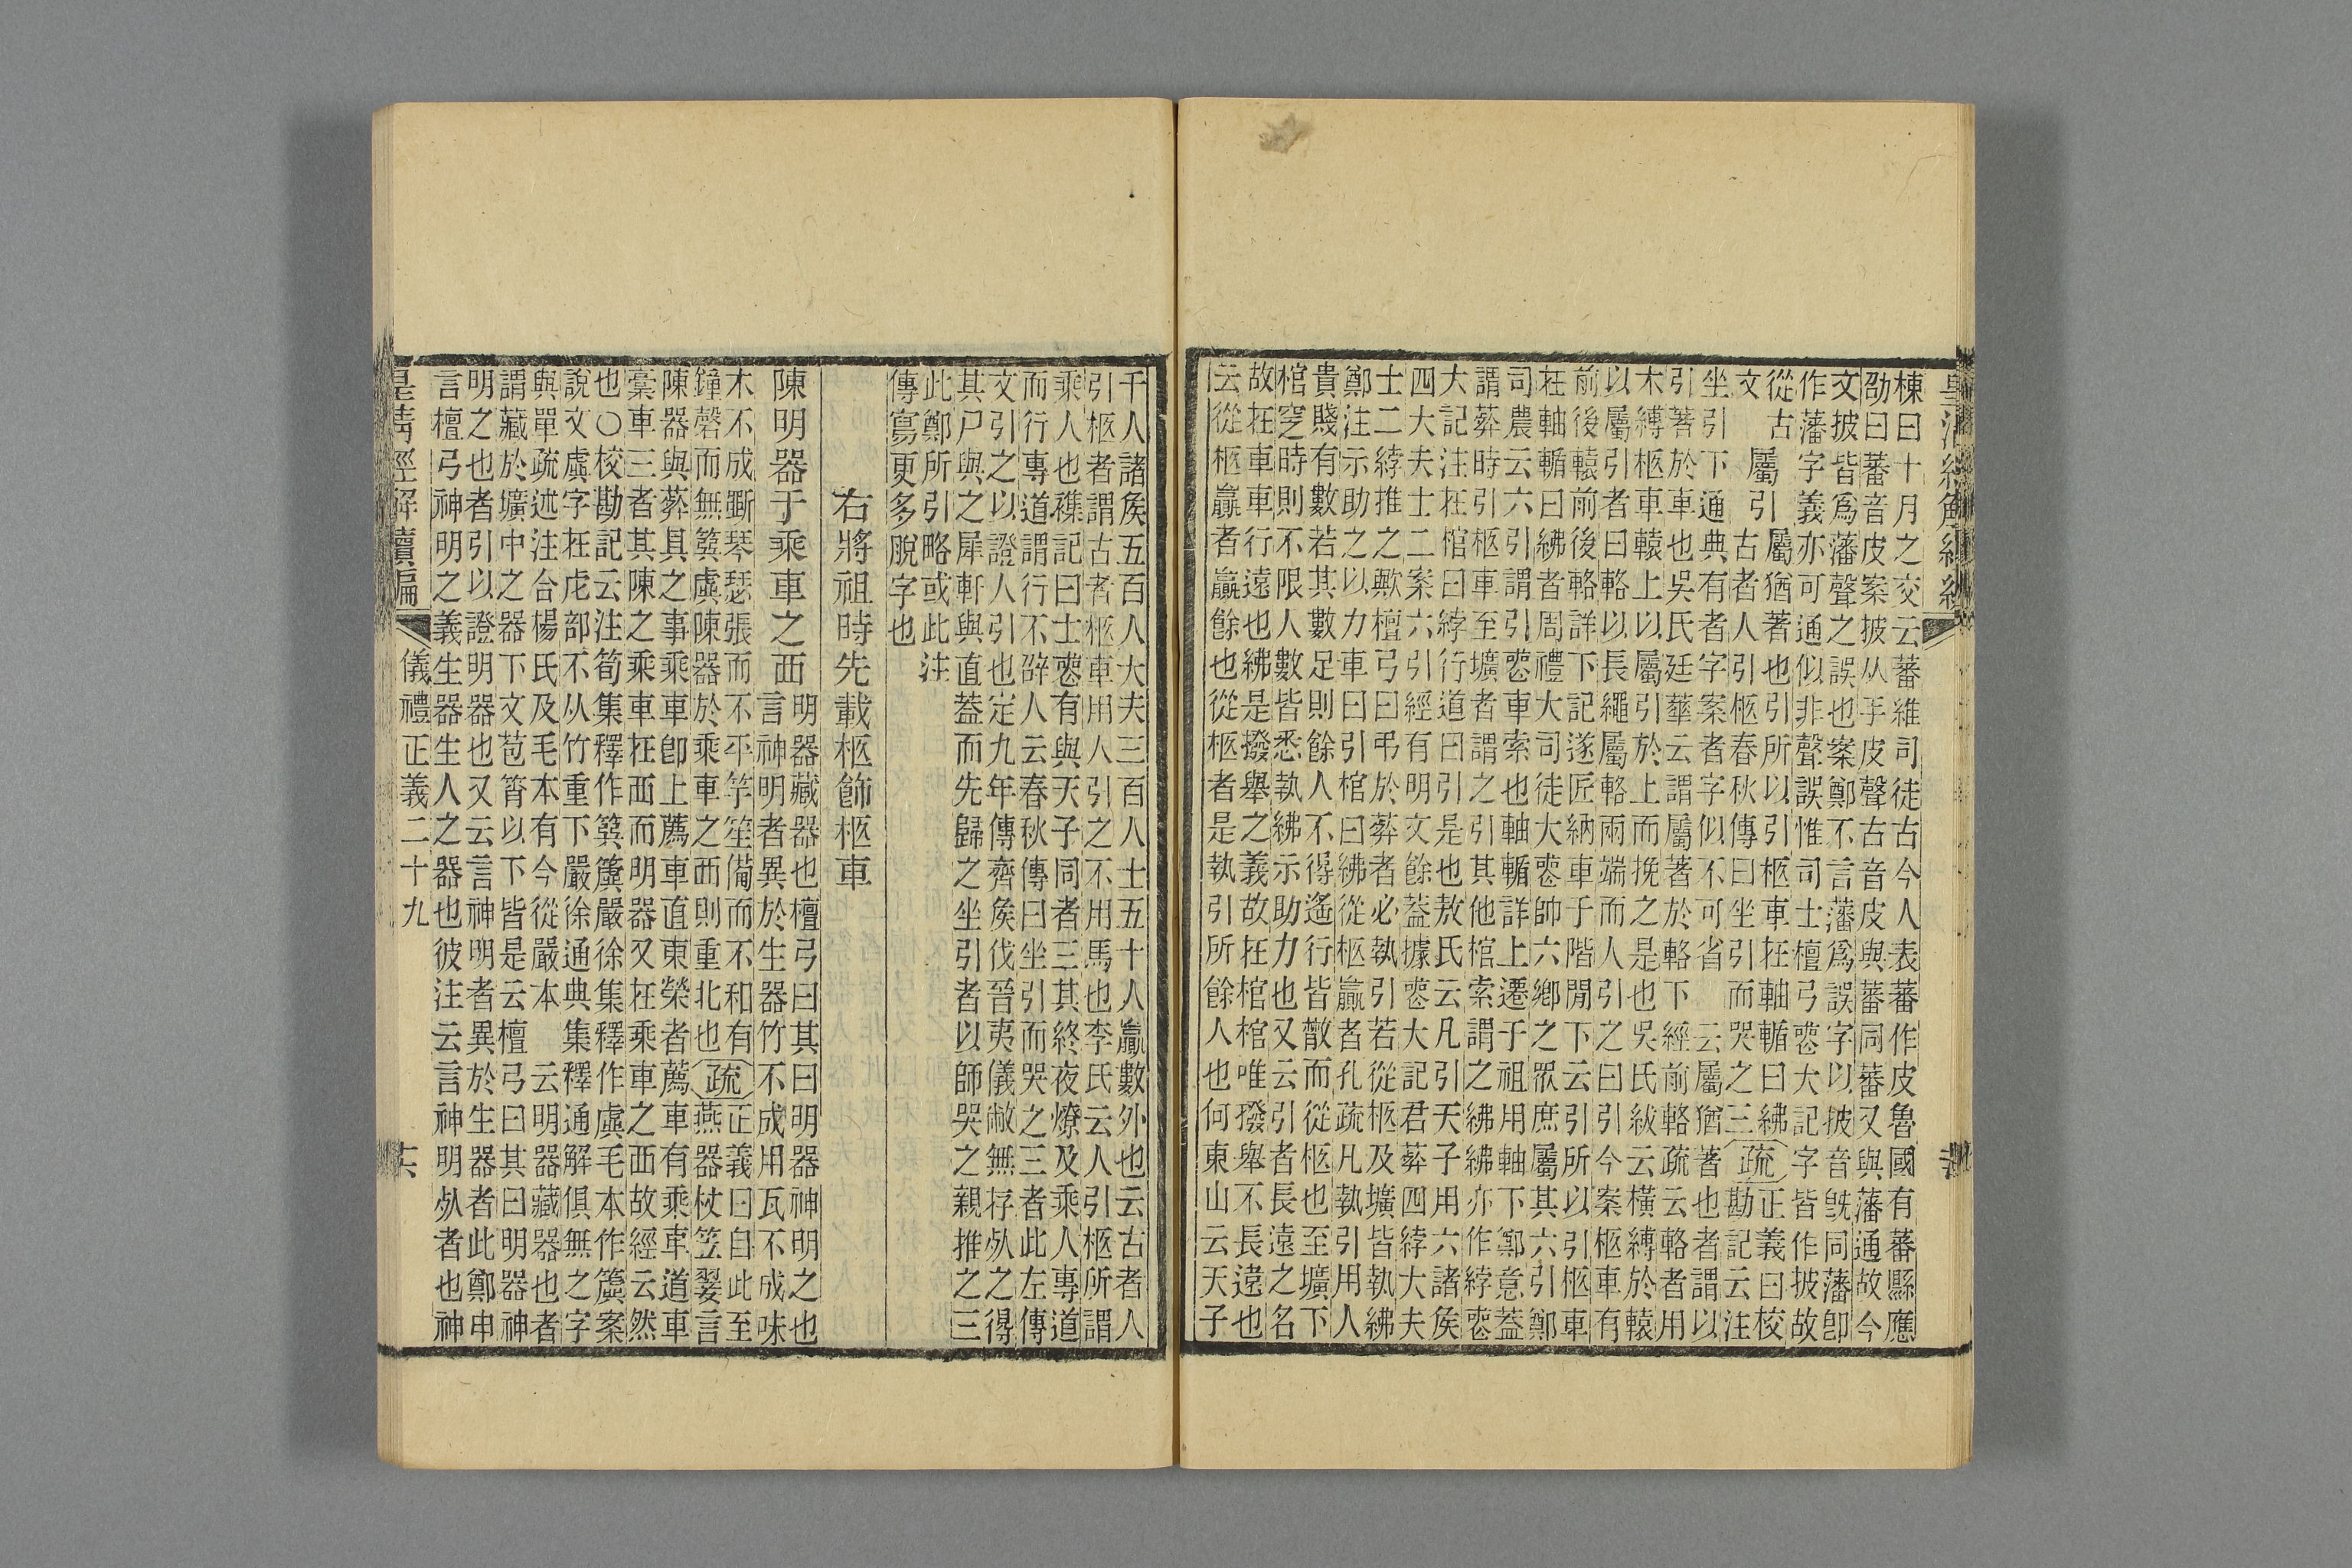 棟曰十月之交云蕃維司徒古今人表蕃作皮魯國有蕃縣應
劭曰蕃音皮案披从手皮聲古音皮與蕃同蕃又與藩通故今
文披皆爲藩聲之誤也案鄭不言藩爲誤字以披音旣同藩卽
作藩字義亦可通似非聲誤惟司士檀弓喪大記字皆作披故
從古
文
屬引
屬猶著也引所以引柩車在軸輴曰紼
古者人引柩春秋傳曰坐引而哭之三
疏
正義曰校
勘記云注
坐引下通典有者字案者字似不可省　云屬猶著也者謂以
引著於車也吳氏廷華云謂屬著於輅下經前輅疏云輅者用
木縛柩車轅上以屬引於上而挽之是也吳氏紱云橫縛於轅
以屬引者曰輅以長繩屬輅兩端而人引之曰引今案柩車有
前後轅前後輅詳下記遂匠納車于階閒下云引所以引柩車
在軸輴曰紼者周禮大司徒大喪帥六鄉之眾庶屬其六引鄭
司農云六引謂引喪車索也軸輴詳上遷于祖用軸下鄭意蓋
謂葬時引柩車至壙者謂之引其他棺索謂之紼紼亦作綍喪
大記注在棺曰綍行道曰引是也敖氏云凡引天子用六諸矦
四大夫士二案六引經有明文餘蓋據喪大記君葬四綍大夫
士二綍推之歟檀弓曰弔於葬者必執引若從柩及壙皆執紼
鄭注示助之以力車曰引棺曰紼從柩贏者孔疏凡執引用人
貴賤有數若其數足則餘人不得遙行皆散而從柩也至壙下
棺窆時則不限人數皆悉執紼示助力也又云引者長遠之名
故在車車行遠也紼是撥舉之義故在棺棺唯撥舉不長遠也
云從柩贏者贏餘也從柩者是執引所餘人也何東山云天子
千人諸矦五百人大夫三百人士五十人贏數外也云古者人
引柩者謂古者柩車用人引之不用馬也李氏云人引柩所謂
乘人也襍記曰士喪有與天子同者三其終夜燎及乘人專道
而行專道謂行不辟人云春秋傳曰坐引而哭之三者此左傳
文引之以證人引也定九年傳齊矦伐晉夷儀敝無存死之得
其尸與之犀軒與直蓋而先歸之坐引者以師哭之親推之三
此鄭所引略或此注
傳寫更多脫字也
右將祖時先載柩飾柩車
陳明器于乘車之西
明器藏器也檀弓曰其曰明器神明之也
言神明者異於生器竹不成用瓦不成味
木不成斲琴瑟張而不平竽笙備而不和有
鐘磬而無簨虡陳器於乘車之西則重北也
疏
正義曰自此至
燕器杖笠翣言
陳器與葬具之事乘車卽上薦車直東榮者薦車有乘車道車
槀車三者其陳之乘車在西而明器又在乘車之西故經云然
也〇校勘記云注筍集釋作簨簴嚴徐集釋作虡毛本作簴案
說文虡字在虍部不从竹重下嚴徐通典集釋通解俱無之字
與單疏述注合楊氏及毛本有今從嚴本　云明器藏器也者
謂藏於壙中之器下文苞筲以下皆是云檀弓曰其曰明器神
明之也者引以證明器也又云言神明者異於生器者此鄭申
言檀弓神明之義生器生人之器也彼注云言神明死者也神
皇淸經解續編
儀禮正義二十九
六